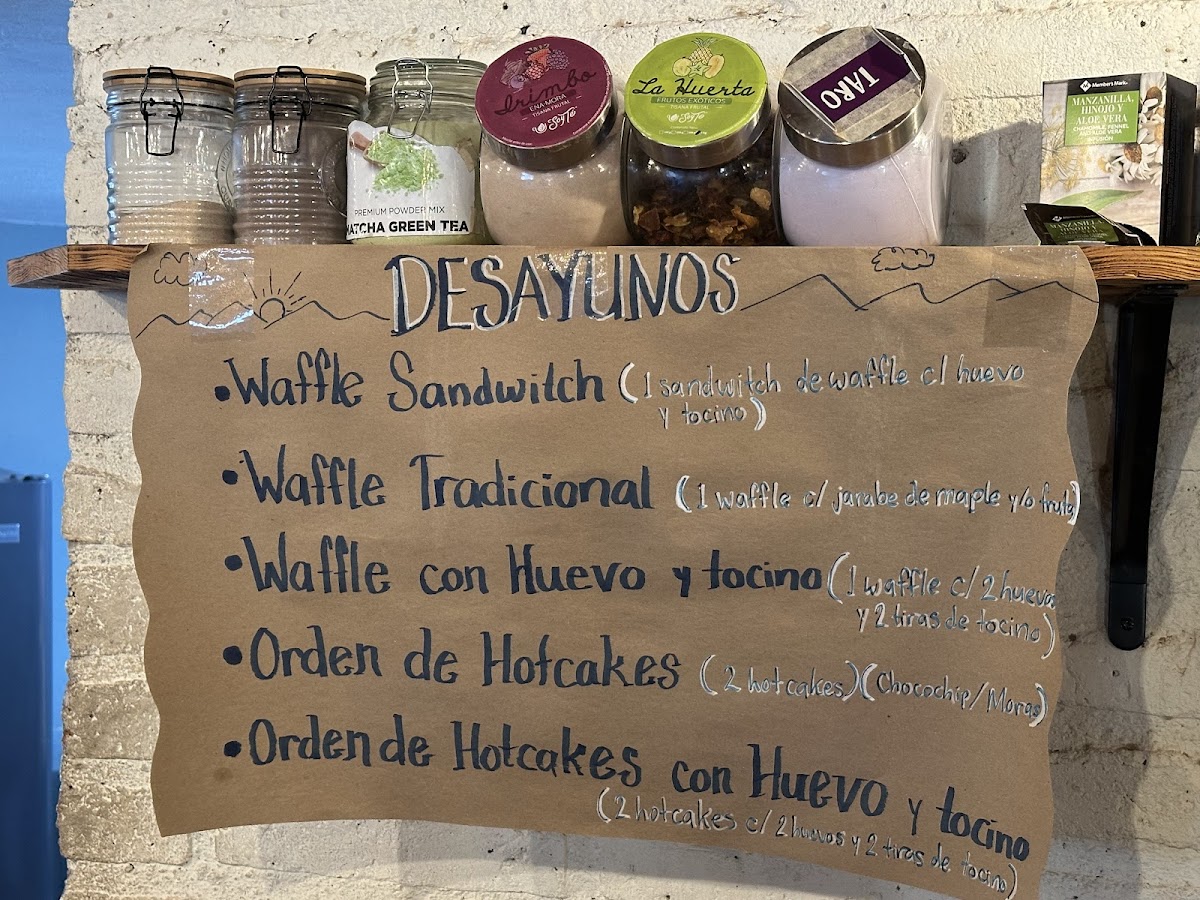 PREMIUM POWDER MIX
MATCHA GREEN TEA
ENA MORA
TISANA FRUTAL
SoyTé
La Huerta
FRUTOS EXÓTICOS
TISANA FRUTAL
SoyTé
TARO
Member's Mark
MANZANILLA,
HINOJO Y
ALOE VERA
CHAMOMILE, FENNEL
AND ALOE VERA
INFUSIÓN
DESAYUNOS
• Waffle Sandwitch (1 sandwitch de waffle c/ huevo
y tocino)
• Waffle Tradicional (1 waffle c/ jarabe de maple y/o fruta)
• Waffle con Huevo y tocino (1 waffle c/ 2 huevos
y 2 tiras de tocino)
• Orden de Hotcakes (2 hotcakes) (Chocochip/Moras)
• Orden de Hotcakes con Huevo y tocino
(2 hotcakes c/ 2 huevos y 2 tiras de tocino)